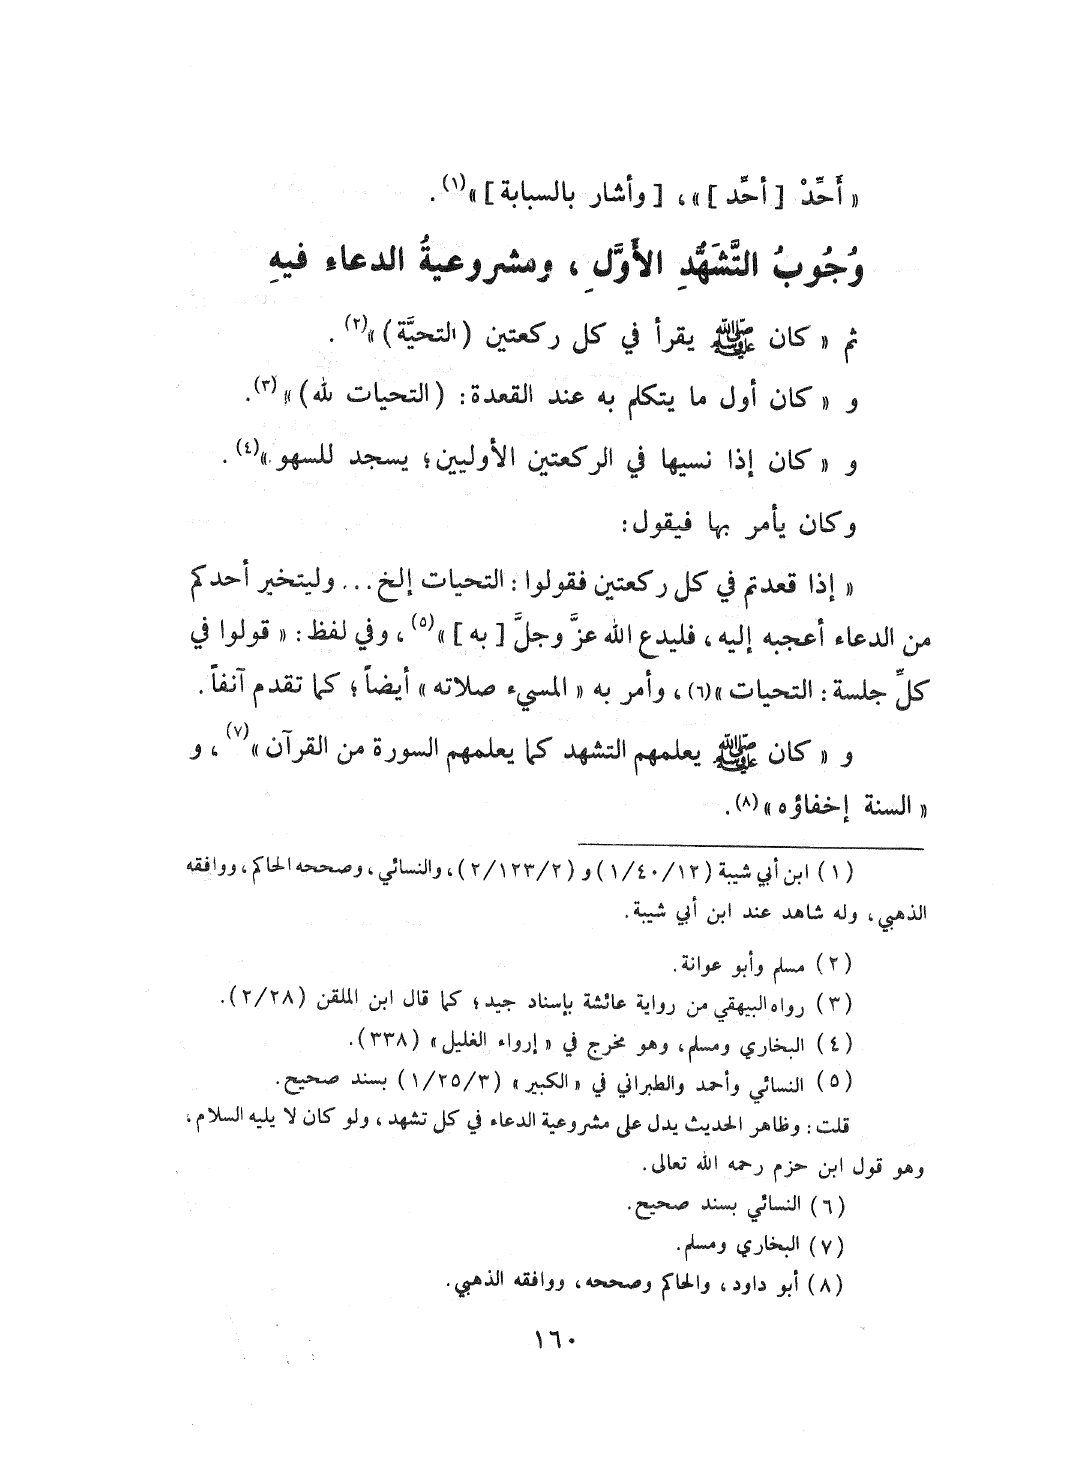 « أَحِّدْ [ أحِّد ] » ، [ وأشار بالسبابة ] »(١) .
وُجُوبُ التَّشَهُّدِ الأَوَّلِ ، ومشروعيةُ الدعاء فيهِ
ثم « كان ﷺ يقرأ في كل ركعتين ( التحيَّة ) »(٢) .
و « كان أول ما يتكلم به عند القعدة : ( التحيات لله ) »(٣) .
و « كان إذا نسيها في الركعتين الأوليين ؛ يسجد للسهو »(٤) .
وكان يأمر بها فيقول :
« إذا قعدتم في كل ركعتين فقولوا : التحيات إلخ ... وليتخير أحدكم
من الدعاء أعجبه إليه ، فليدع الله عزَّ وجلَّ [ به ] »(٥) ، وفي لفظ : « قولوا في
كلِّ جلسة : التحيات »(٦) ، وأمر به « المسيء صلاته » أيضاً ؛ كما تقدم آنفاً .
و « كان ﷺ يعلمهم التشهد كما يعلمهم السورة من القرآن »(٧) ، و
« السنة إخفاؤه »(٨) .
(١) ابن أبي شيبة (١/٤٠/١٢) و (٢/١٢٣/٢) ، والنسائي ، وصححه الحاكم ، ووافقه
الذهبي ، وله شاهد عند ابن أبي شيبة .
(٢) مسلم وأبو عوانة .
(٣) رواه البيهقي من رواية عائشة بإسناد جيد ؛ كما قال ابن الملقن (٢/٢٨) .
(٤) البخاري ومسلم ، وهو مخرج في « إرواء الغليل » (٣٣٨) .
(٥) النسائي وأحمد والطبراني في « الكبير » (١/٢٥/٣) بسند صحيح .
قلت : وظاهر الحديث يدل على مشروعية الدعاء في كل تشهد ، ولو كان لا يليه السلام ،
وهو قول ابن حزم رحمه الله تعالى .
(٦) النسائي بسند صحيح .
(٧) البخاري ومسلم .
(٨) أبو داود ، والحاكم وصححه ، ووافقه الذهبي .
١٦٠